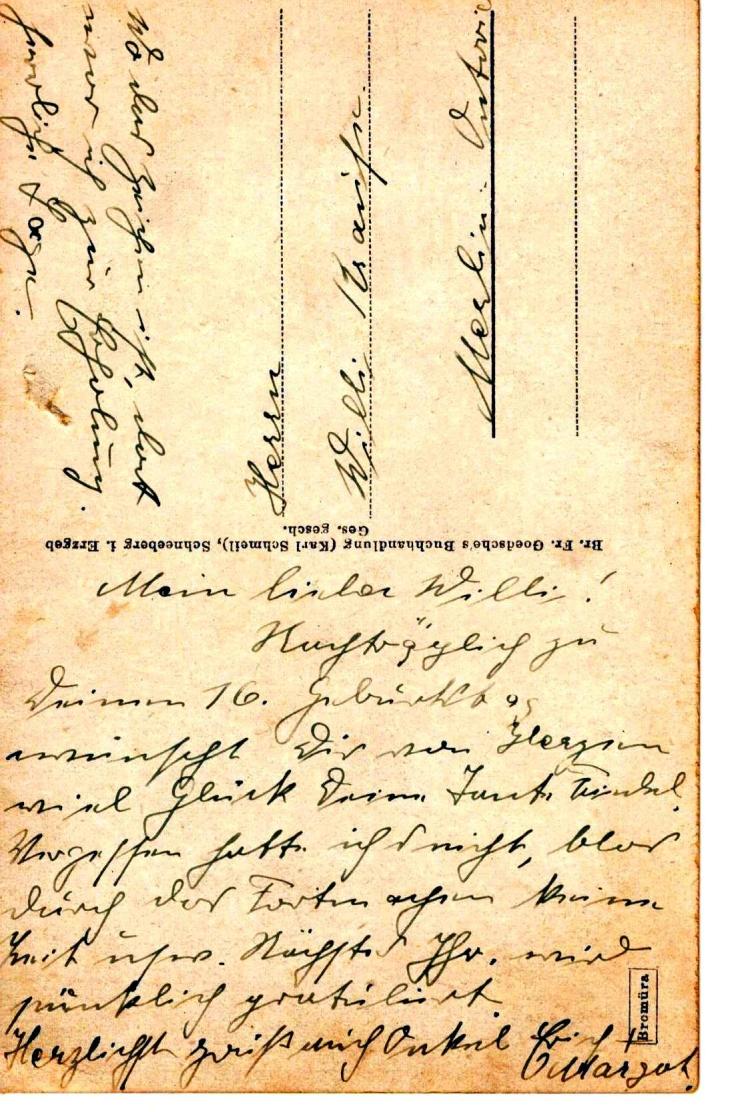 Mein lieber Willi!
Nachträglich zu
Deinem 16. Geburtstag
wünscht Dir von Herzen
viel Glück Deine Tante Trudel.
Vergessen hatte ich's nicht, blos
durch das Fortmachen keine
Zeit usw. Nächstes Jhr. wird
pünktlich gratuliert
Herzlichst grüßt auch Onkel Erich +
Margot.
Wo das Zeichen ist, dort
war ich zur Erholung.
herrliche Tage.
Herrn
Willi Krause.
Berlin-
Br. Fr. Goedsche's Buchhandlung (Karl Schmeil), Schneeberg i. Erzgeb
Ges. gesch.
Bromüra